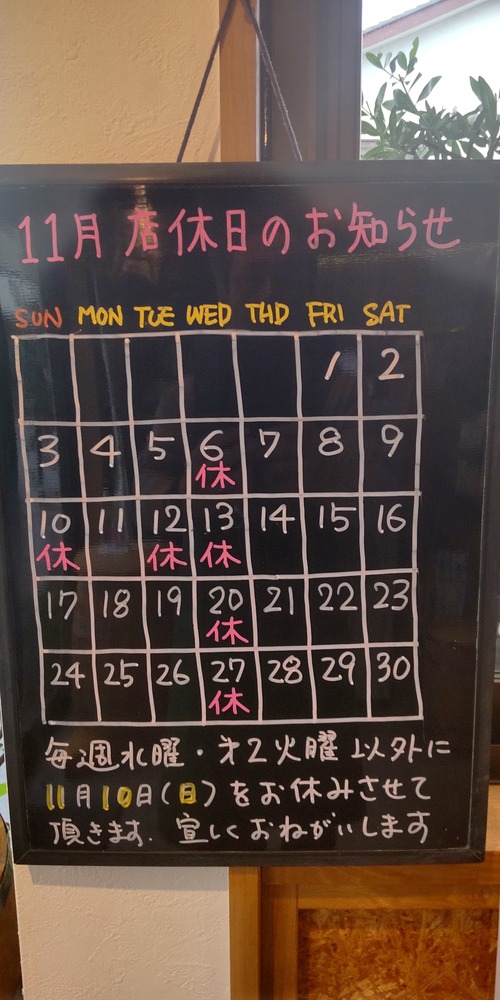 11月 店休日のお知らせ
SUN MON TUE WED THD FRI SAT
1 2
3 4 5 6 7 8 9
休
10 11 12 13 14 15 16
休 休 休
17 18 19 20 21 22 23
休
24 25 26 27 28 29 30
休
毎週水曜・才2火曜以外に
11月10日(日)をお休みさせて
頂きます. 宜しくおねがいします